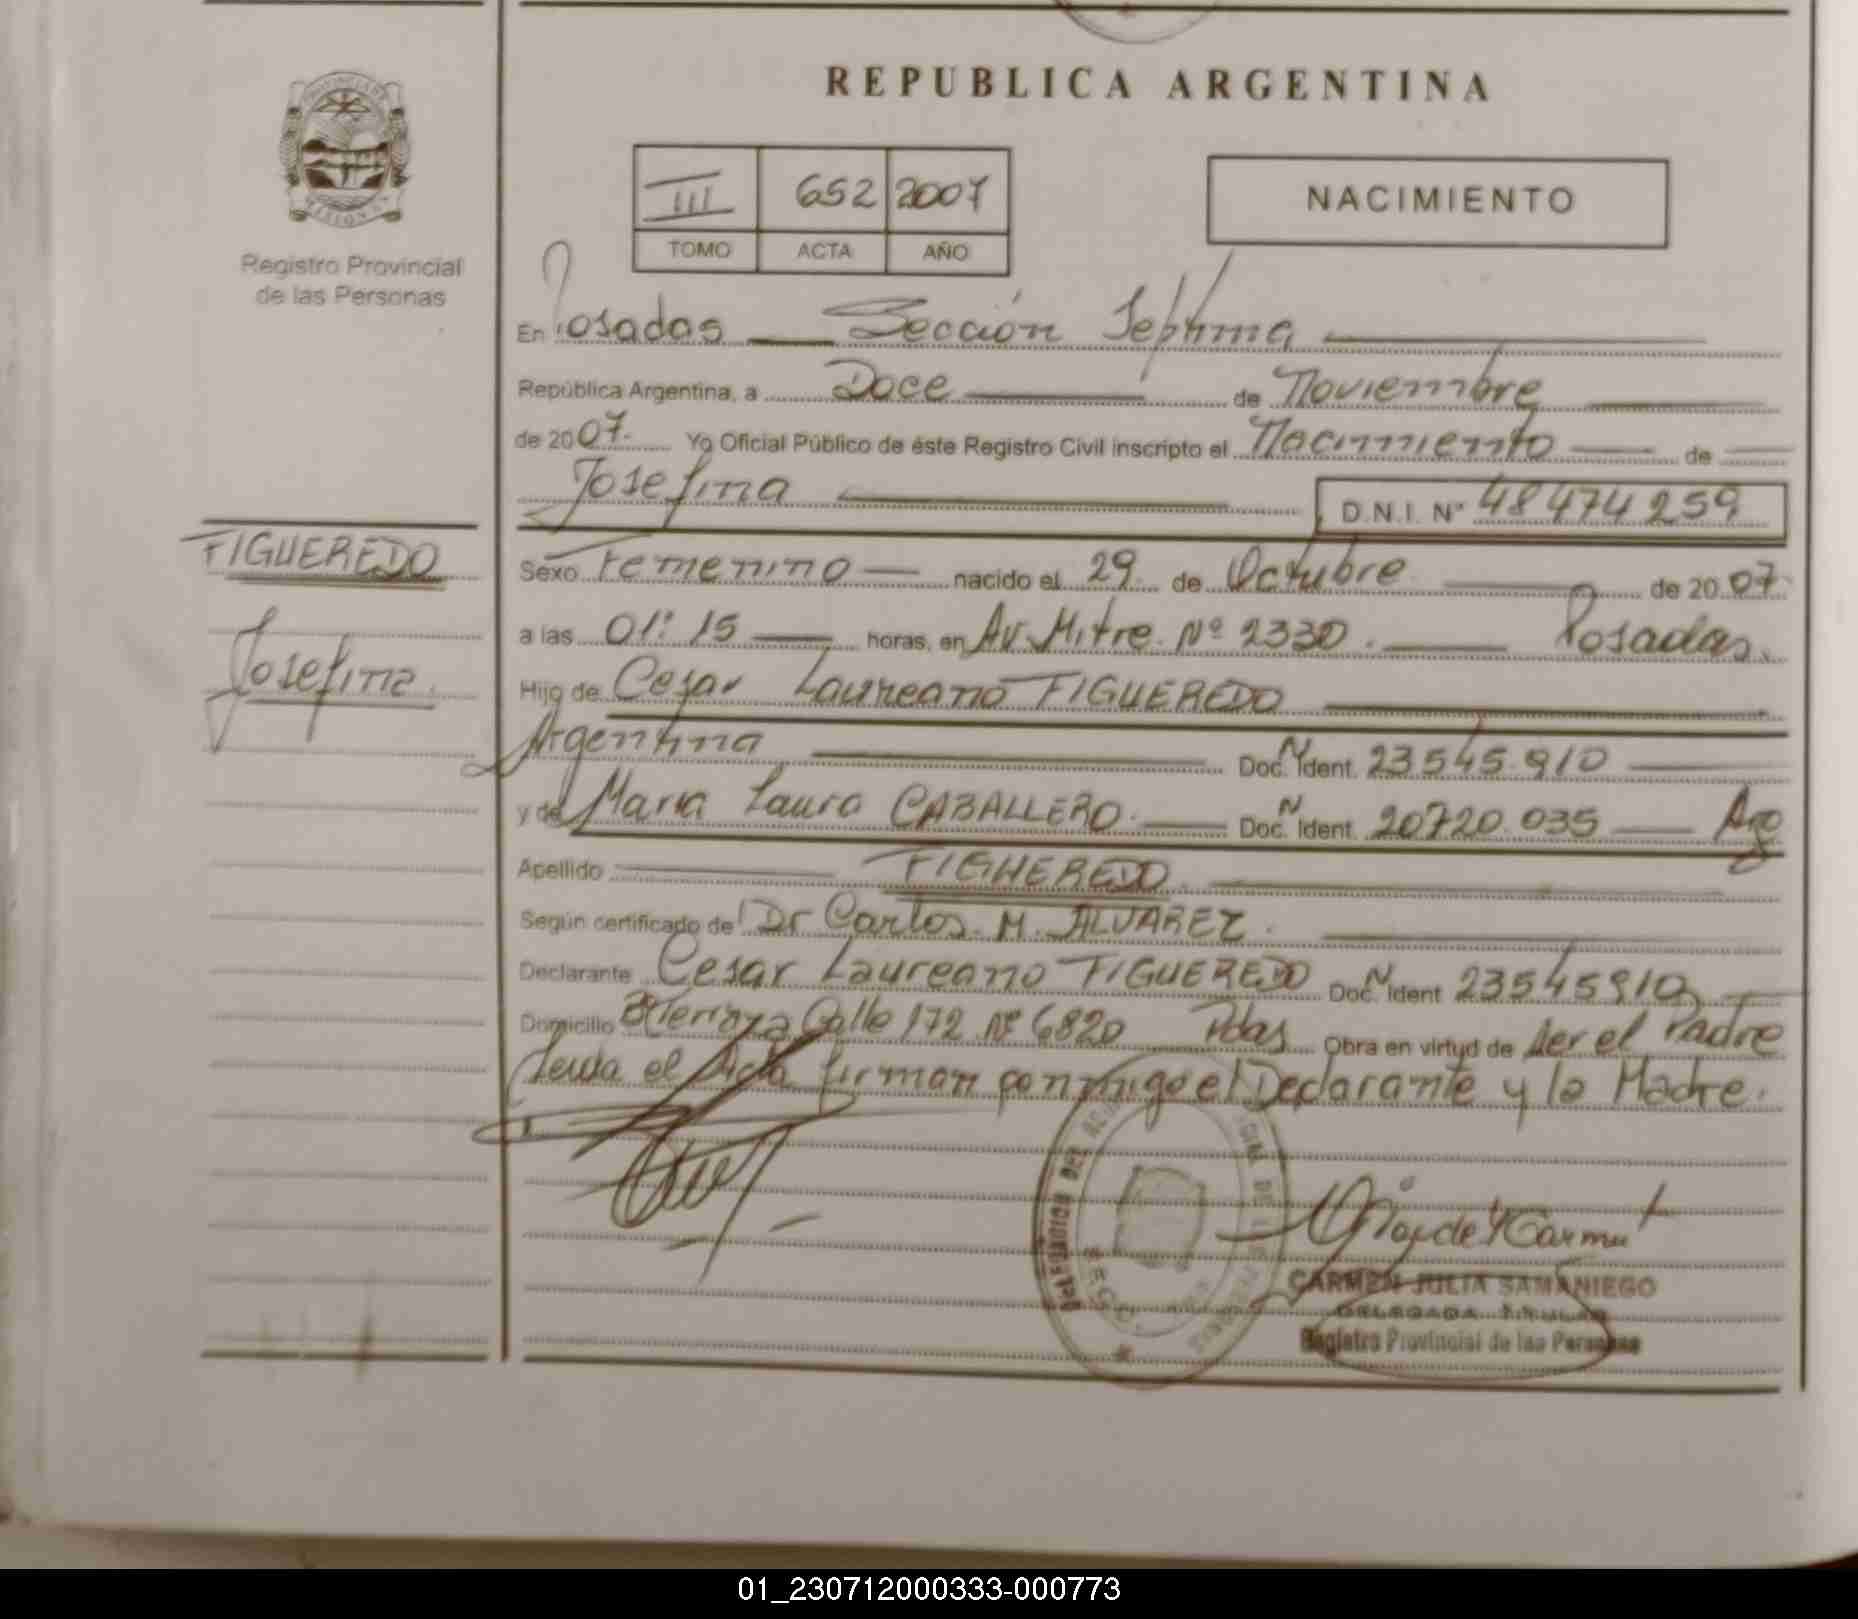 REPUBLICA ARGENTINA
III 652 2007
TOMO ACTA AÑO
NACIMIENTO
Registro Provincial
de las Personas
En Posadas Sección Septima
República Argentina, a Doce de Noviembre
de 2007. Yo Oficial Público de éste Registro Civil inscripto el Nacimiento de
Josefina D.N.I. Nº 48474259
FIGUEREDO
Josefina.
Sexo Femenino nacido el 29. de Octubre de 20 07.
a las 01:15 horas, en Av. Mitre. Nº 2330. Posadas.
Hijo de Cesar Laureano FIGUEREDO
Argentina Doc. N Ident. 23545.910
y de Maria Laura CABALLERO. Doc. N Ident. 20720.035 Arg
Apellido FIGUEREDO.
Según certificado de Dr Carlos. M. ALVAREZ.
Declarante Cesar Laureano FIGUEREDO Doc. N Ident 23545910
Domicilio Calle 172 Nº 6820 Pdas Obra en virtud de ser el Padre
Leida el Acta firman conmigo el Declarante y la Madre.
CARMEN JULIA SAMANIEGO
DELEGADA TITULAR
Registro Provincial de las Personas
01_230712000333-000773